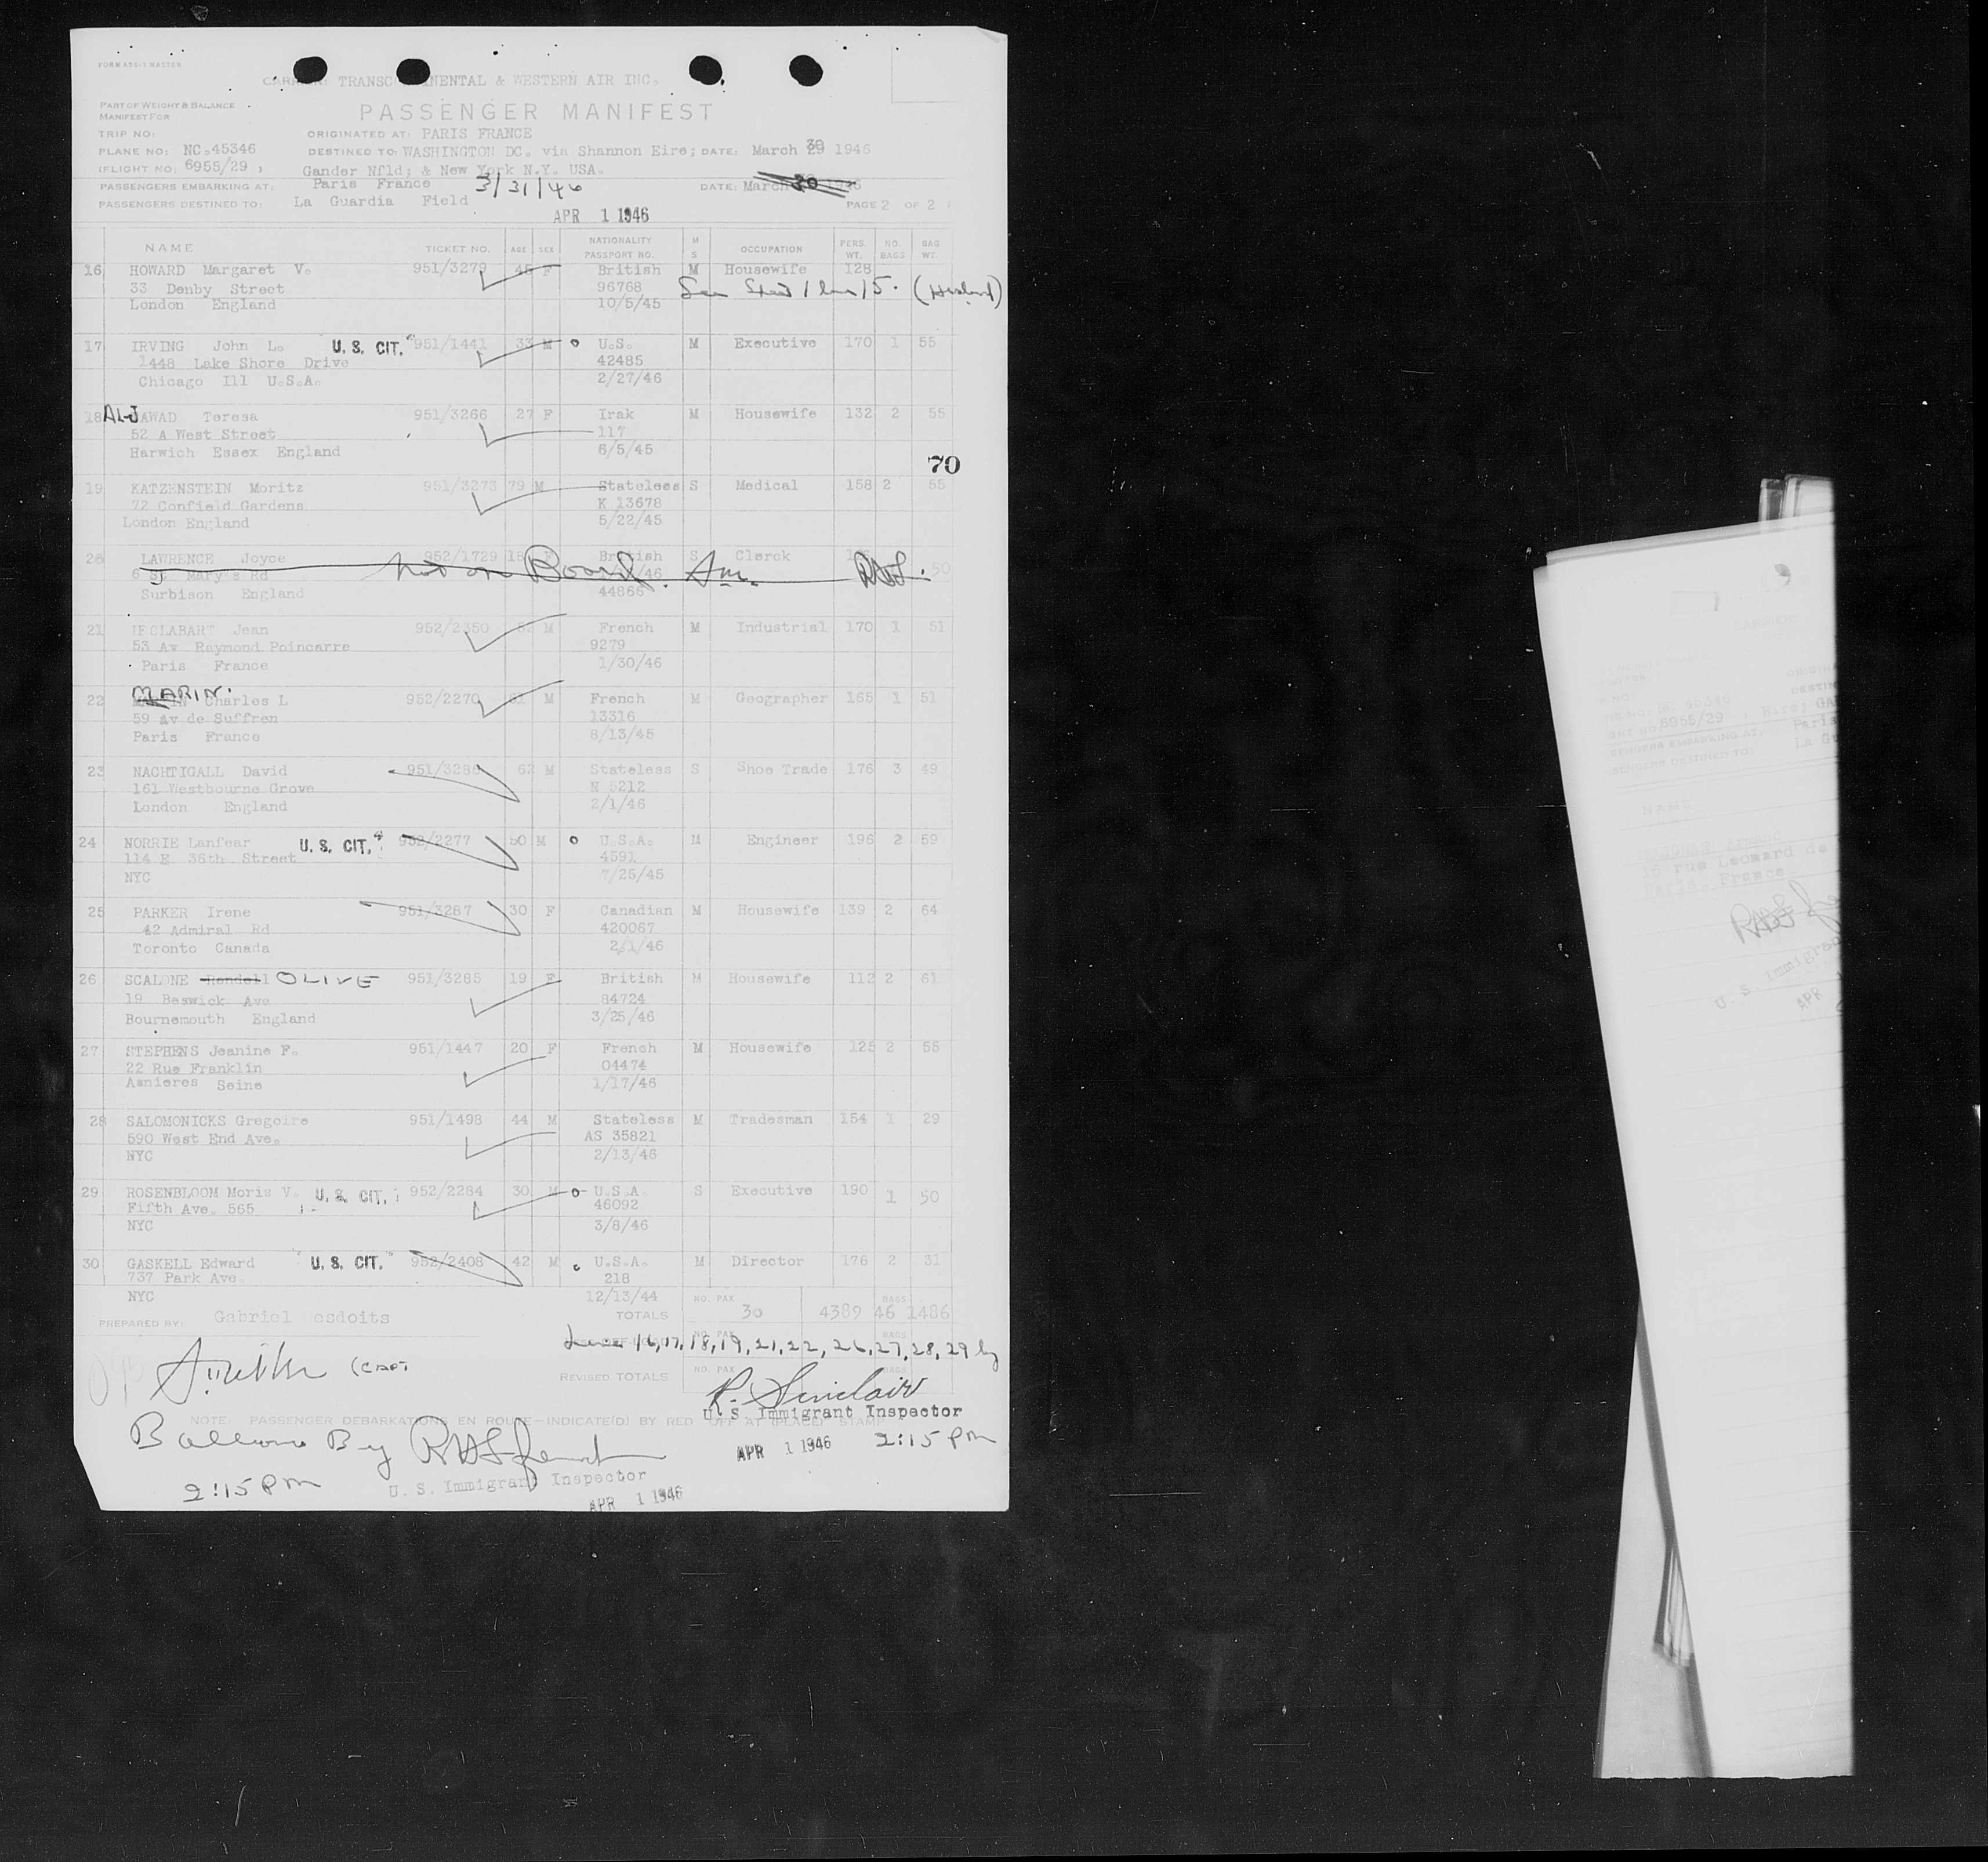 FORM A36-1 MASTER
TRANSCONTINENTAL & WESTERN AIR INC.
PART OF WEIGHT & BALANCE
MANIFEST FOR
PASSENGER MANIFEST
TRIP NO: ORIGINATED AT: PARIS FRANCE
PLANE NO: NC.45346 DESTINED TO: WASHINGTON DC. via Shannon Eire; DATE: March 1946
(FLIGHT NO: 6955/29 ) Gander Nfld; & New York N.Y. USA.
PASSENGERS EMBARKING AT: Paris France 3/31/46 DATE: March 30 1946
PASSENGERS DESTINED TO: La Guardia Field PAGE 2 OF 2
APR 1 1946
NAME TICKET NO. AGE SEX NATIONALITY PASSPORT NO. M S OCCUPATION PERS. WT. NO. BAGS BAG WT.
16 HOWARD Margaret V. 951/3279 F British M Housewife 128
33 Denby Street 96768 (Husband)
London England 10/5/45
17 IRVING John L. U. S. CIT. 951/1441 33 M U.S. M Executive 170 1 55
1448 Lake Shore Drive 42485
Chicago Ill U.S.A. 2/27/46
18 AL-JAWAD Teresa 951/3266 27 F Irak M Housewife 132 2 55
52 A West Street 117
Harwich Essex England 6/5/45
70
19 KATZENSTEIN Moritz 951/3273 79 M Stateless S Medical 158 2 55
72 Confield Gardens K 13678
London England 5/22/45
LAWRENCE Joyce 952/1729 18 British S Clerck
6 St Mary's Rd not on Board. 50
Surbison England 44866
21 Jean 952/2350 M French M Industrial 170 1 51
53 Av Raymond Poincarre 9279
Paris France 1/30/46
22 MARIN. Charles L 952/2270 M French M Geographer 165 1 51
59 Av de Suffren 13316
Paris France 8/13/45
23 NACHTIGALL David 951/3286 62 M Stateless S Shoe Trade 176 3 49
161 Westbourne Grove N 5212
London England 2/1/46
24 NORRIE Lanfear U. S. CIT. 952/2277 50 M U.S.A. M Engineer 196 2 59
114 E 36th Street 4591
NYC 7/25/45
25 PARKER Irene 951/3287 30 F Canadian M Housewife 139 2 64
42 Admiral Rd 420067
Toronto Canada 2/1/46
26 SCALONE Rendell OLIVE 951/3285 19 F British M Housewife 112 2 61
19 Beswick Ave 84724
Bournemouth England 3/25/46
27 STEPHENS Jeanine F. 951/1447 20 F French M Housewife 125 2 55
22 Rue Franklin 04474
Asnieres Seine 1/17/46
28 SALOMONICKS Gregoire 951/1498 44 M Stateless M Tradesman 154 1 29
590 West End Ave. AS 35821
NYC 2/13/46
29 ROSENBLOOM Moris V. U. S. CIT. 952/2284 30 M U.S.A. S Executive 190 1 50
Fifth Ave. 565 46092
NYC 3/8/46
30 GASKELL Edward U. S. CIT. 952/2408 42 M U.S.A. M Director 176 2 31
737 Park Ave. 218
NYC 12/13/44 NO. PAX BAGS
PREPARED BY: Gabriel Desdoits TOTALS 30 4389 46 1486
16, 17, 18, 19, 21, 22, 26, 27, 28, 29 by
REVISED TOTALS NO. PAX BAGS
R. Sinclair
U. S Immigrant Inspector
NOTE: PASSENGER DEBARKATIONS EN ROUTE—INDICATE(D) BY RED "OFF AT (PLACE)" STAMP
Balance By
APR 1 1946 2:15 PM
2:15 PM U. S. Immigrant Inspector
APR 1 1946
6955/29
Paris
La Gu
NAME
Paris, France
U. S. Immigra
APR